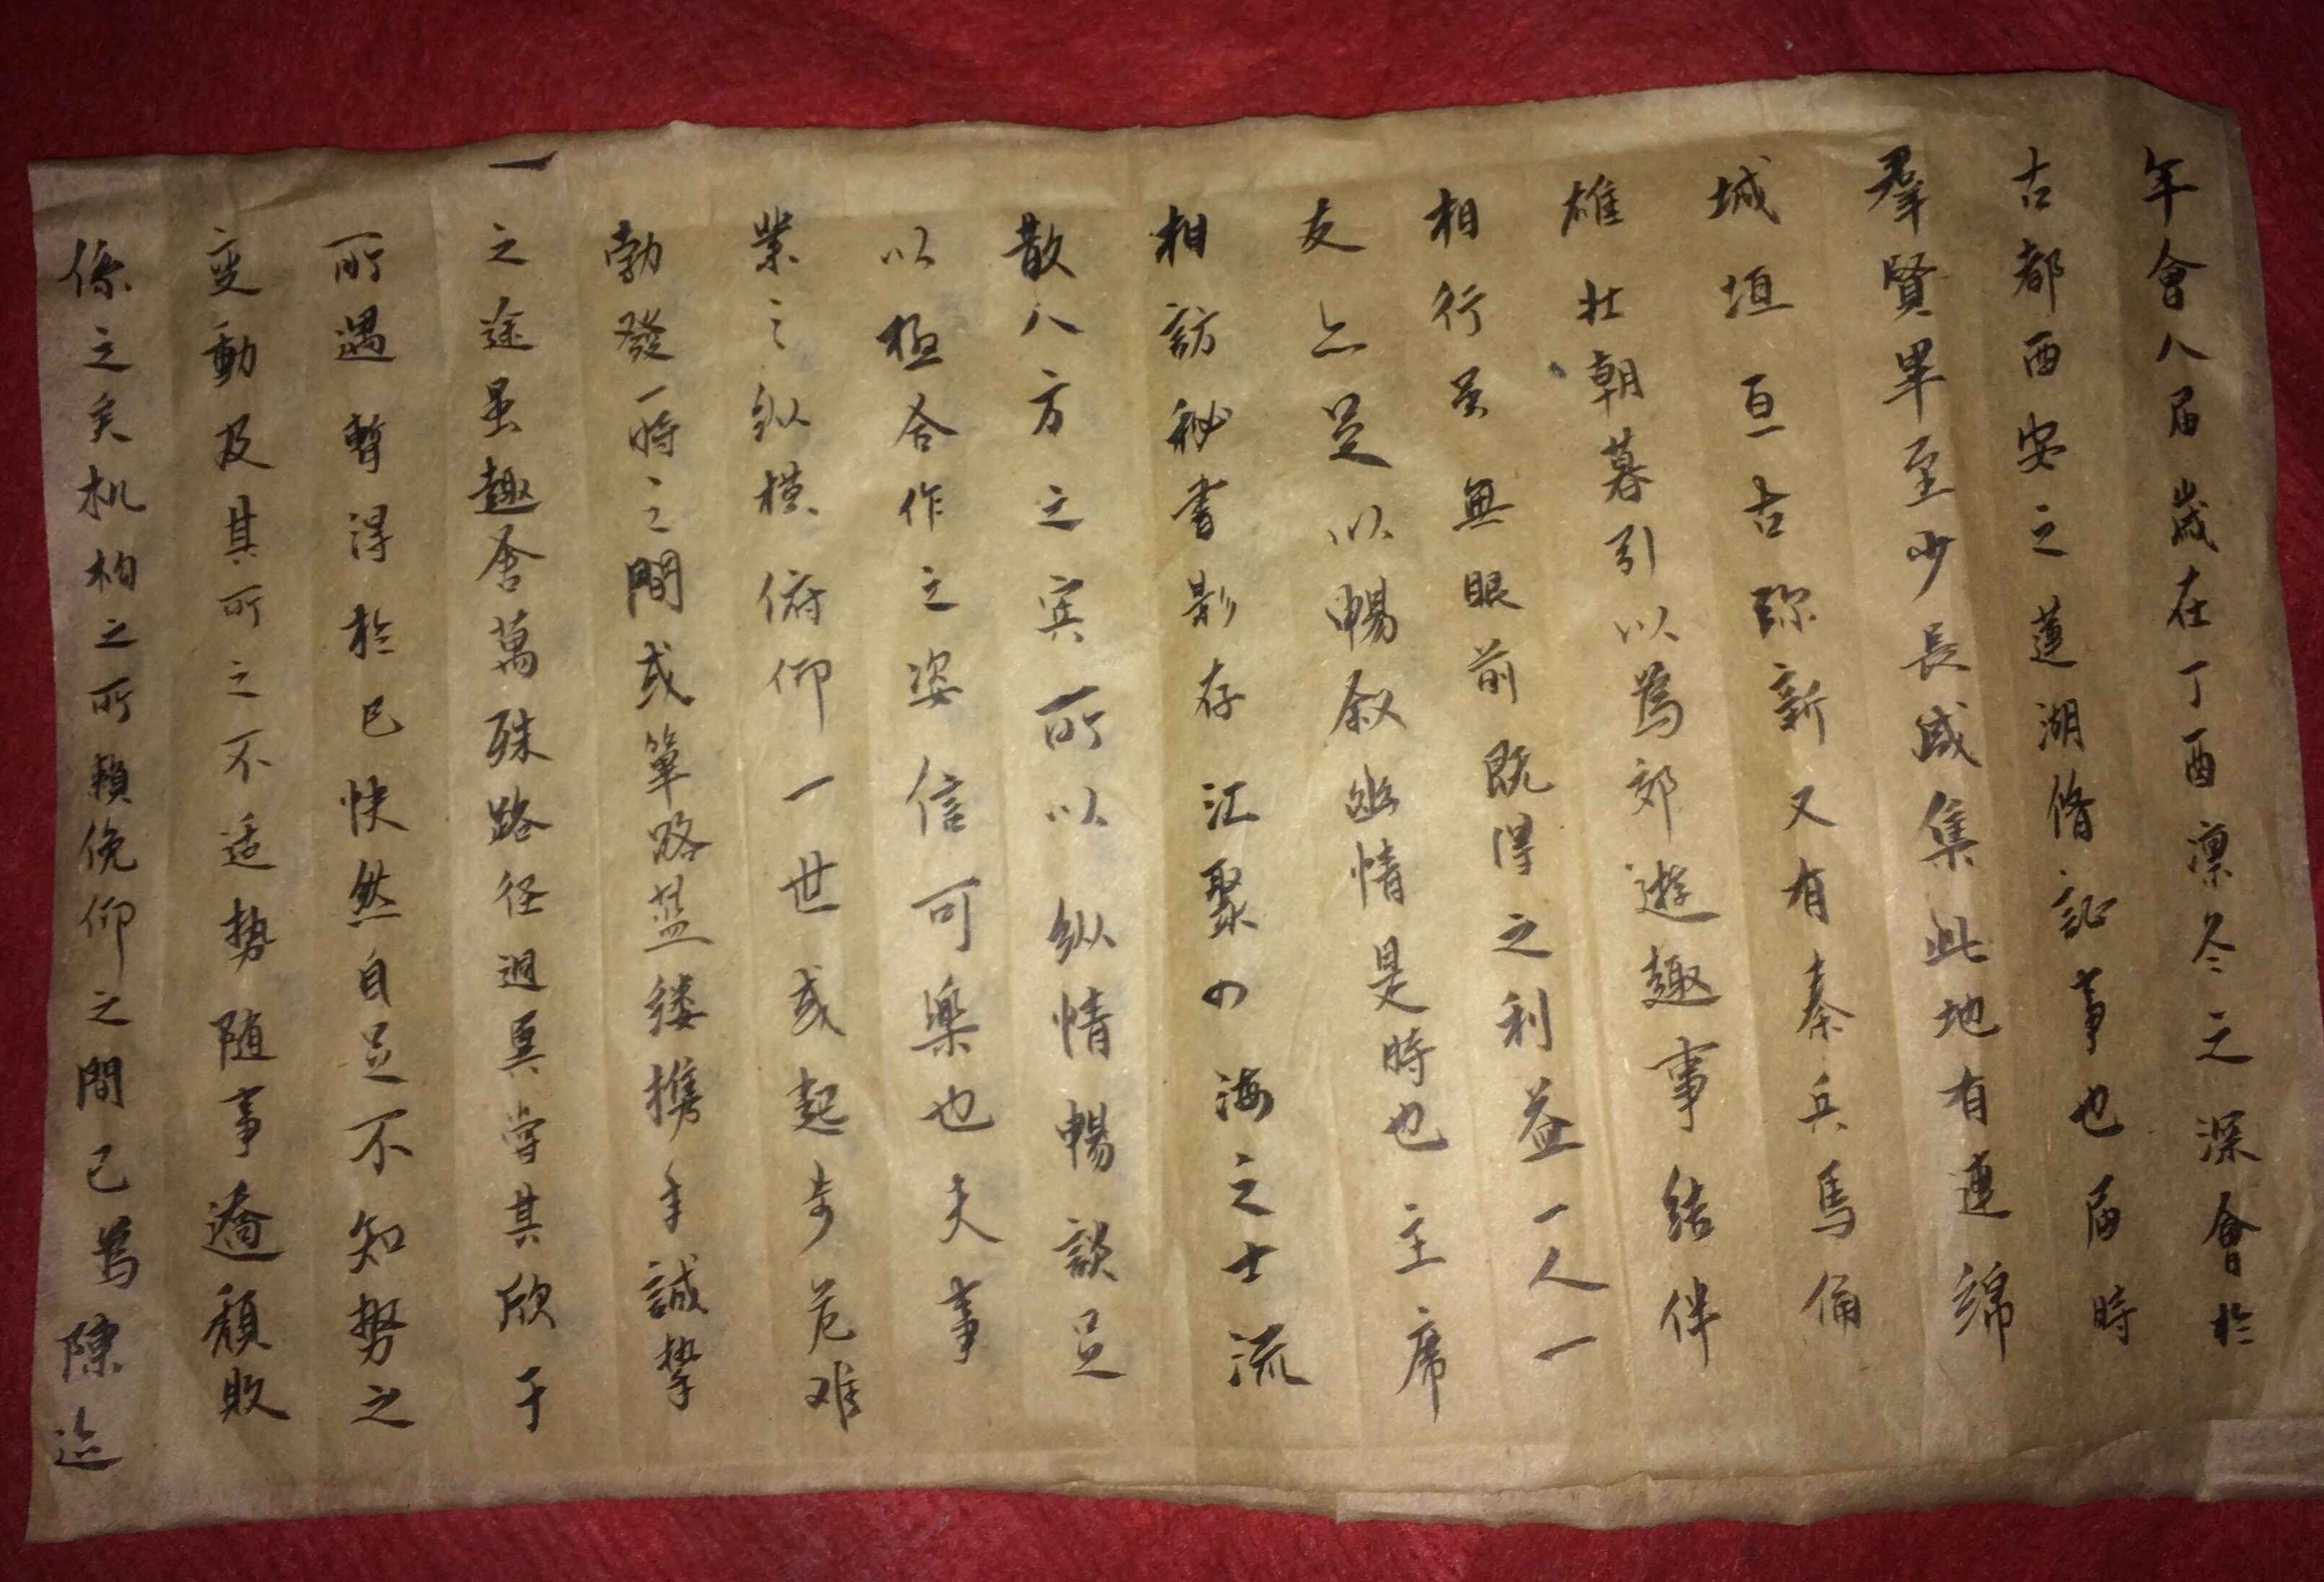 年會八届歲在丁酉凛冬之深會於
古都西安之蓮湖脩訟事也届時
羣賢畢至少長咸集此地有連綿
城垣亘古弥新又有秦兵馬俑
雄壮朝暮引以為郊遊趣事结伴
相行虽無眼前既得之利益一人一
友亦足以暢叙幽情是時也主席
相訪秘書影存汇聚四海之士流
散八方之宾所以纵情暢談足
以極合作之姿信可樂也夫事
業之纵横俯仰一世或起步危难
勃發一時之間或筚路蓝缕携手誠挚
一之途虽趣舍萬殊路径迥異當其欣于
所遇暫得於己快然自足不知势之
变動及其所之不适势随事遷頹败
係之矣机构之所賴俛仰之間已為陳迹